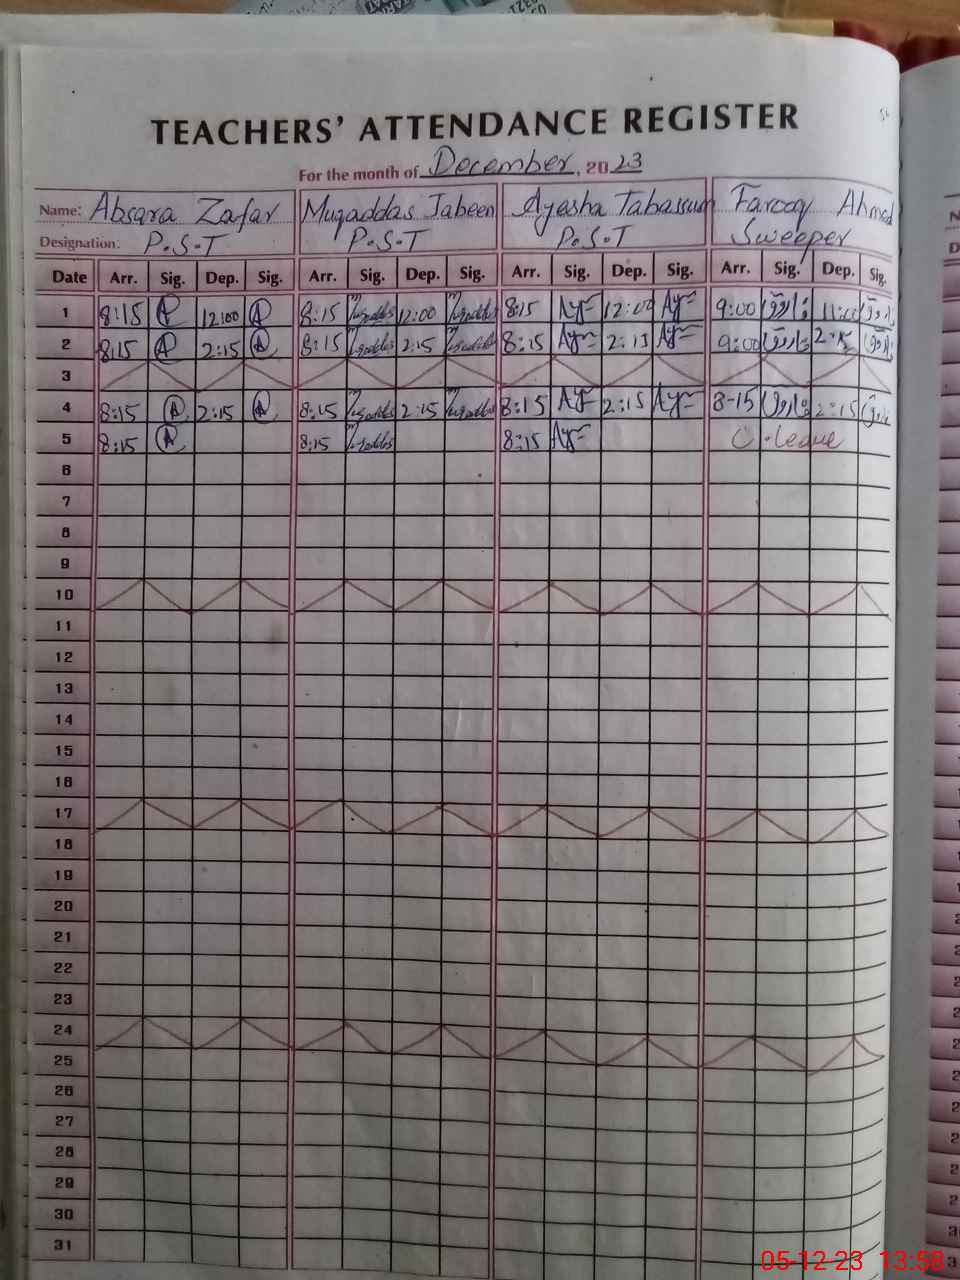 TEACHERS' ATTENDANCE REGISTER
For the month of December, 2023
Name: Absara Zafar Muqaddas Jabeen Ayesha Tabassum Farooq Ahmed
Designation: P.S.T P.S.T P.S.T Sweeper
Date Arr. Sig. Dep. Sig. Arr. Sig. Dep. Sig. Arr. Sig. Dep. Sig. Arr. Sig. Dep. Sig.
1 8:15 A 12:00 A 8:15 Muqaddas 12:00 Muqaddas 8:15 Ay 12:00 Ay 9:00 فاروق 11:00 فاروق
2 8:15 A 2:15 A 8:15 Muqaddas 2:15 Muqaddas 8:15 Ay 2:15 Ay 9:00 فاروق 2:15 فاروق
3
4 8:15 A 2:15 A 8:15 Muqaddas 2:15 Muqaddas 8:15 Ay 2:15 Ay 8-15 فاروق 2:15 فاروق
5 8:15 A 8:15 Muqaddas 8:15 Ay C.leave
6
7
8
9
10
11
12
13
14
15
16
17
18
19
20
21
22
23
24
25
26
27
28
29
30
31
05-12-23 13:58